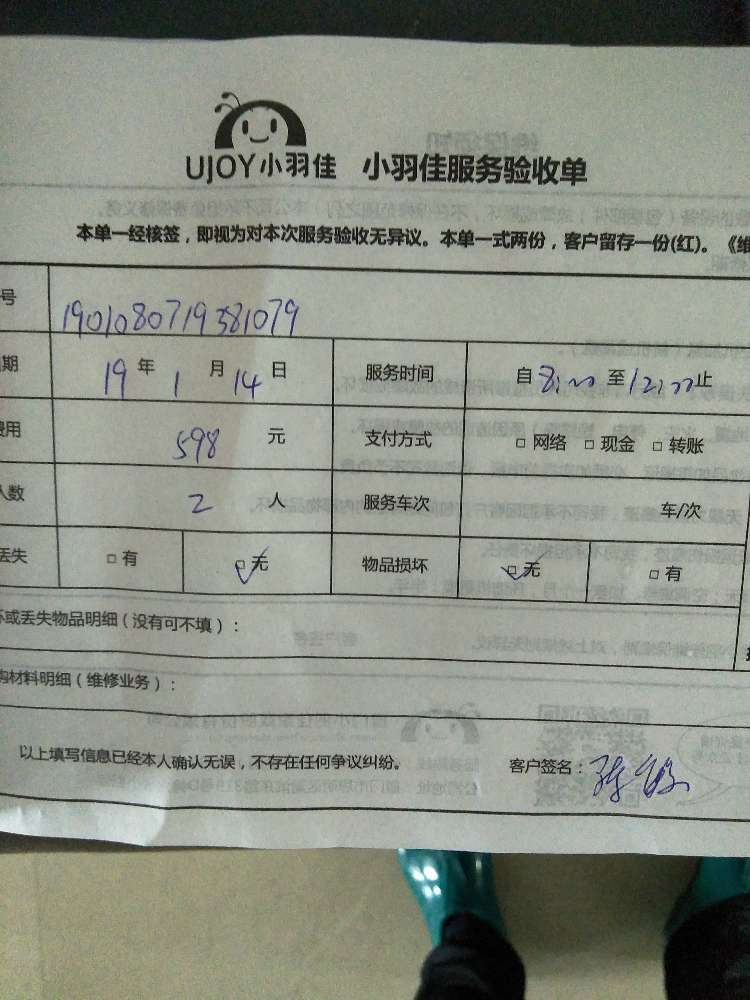 UJOY小羽佳 小羽佳服务验收单
本单一经核签，即视为对本次服务验收无异议。本单一式两份，客户留存一份(红)。《维
号 1901080719381079
期 19 年 1 月 14 日 服务时间 自 8:00 至 12:00 止
费用 598 元 支付方式 □ 网络 □ 现金 □ 转账
人数 2 人 服务车次 车/次
丢失 □ 有 □ 无 物品损坏 □ 无 □ 有
坏或丢失物品明细（没有可不填）：
购材料明细（维修业务）：
以上填写信息已经本人确认无误，不存在任何争议纠纷。 客户签名：